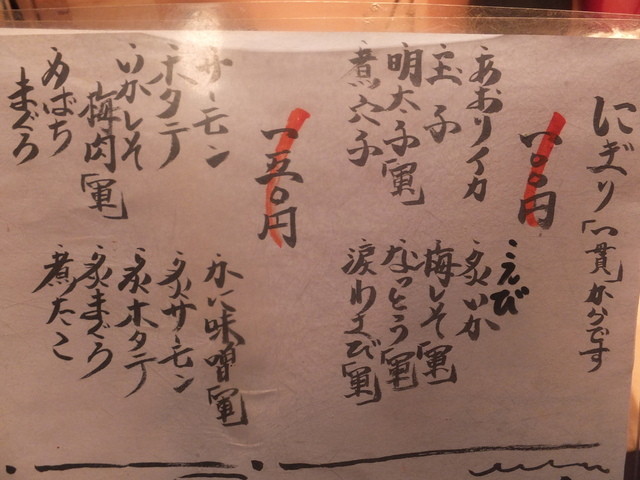 にぎり「一貫」からです
一〇〇円
あおりイカ
玉子
明太子「軍」
煮穴子
えび
炙いか
梅しそ「軍」
なっとう「軍」
涙わさび「軍」
一五〇円
サーモン
ホタテ
いかしそ
梅肉「軍」
めばち
まぐろ
かに味噌「軍」
炙サーモン
炙ホタテ
炙まぐろ
煮たこ